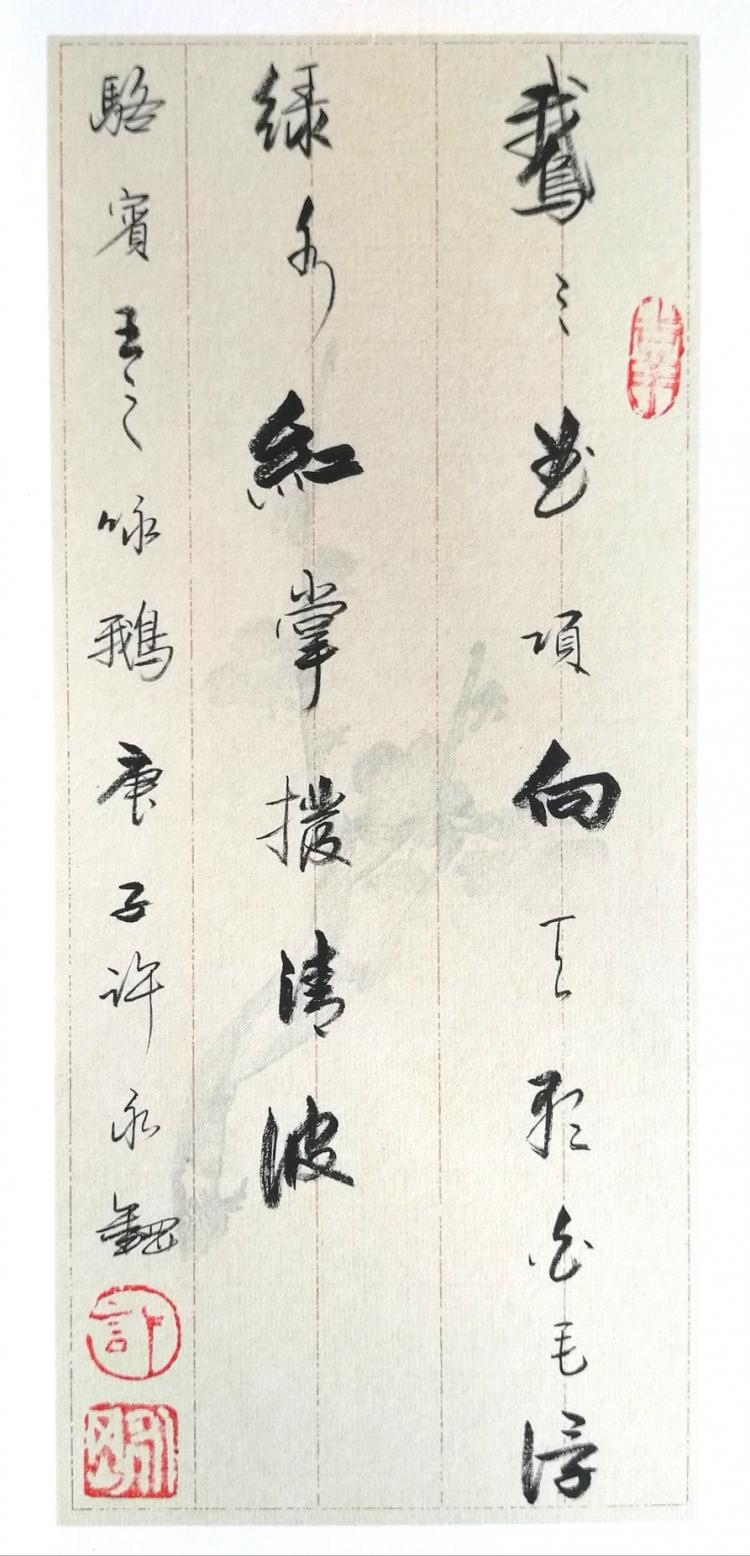 鵞々曲項向天歌白毛浮
綠水紅掌撥清波
駱賓王之咏鵝庚子許永鋼
許